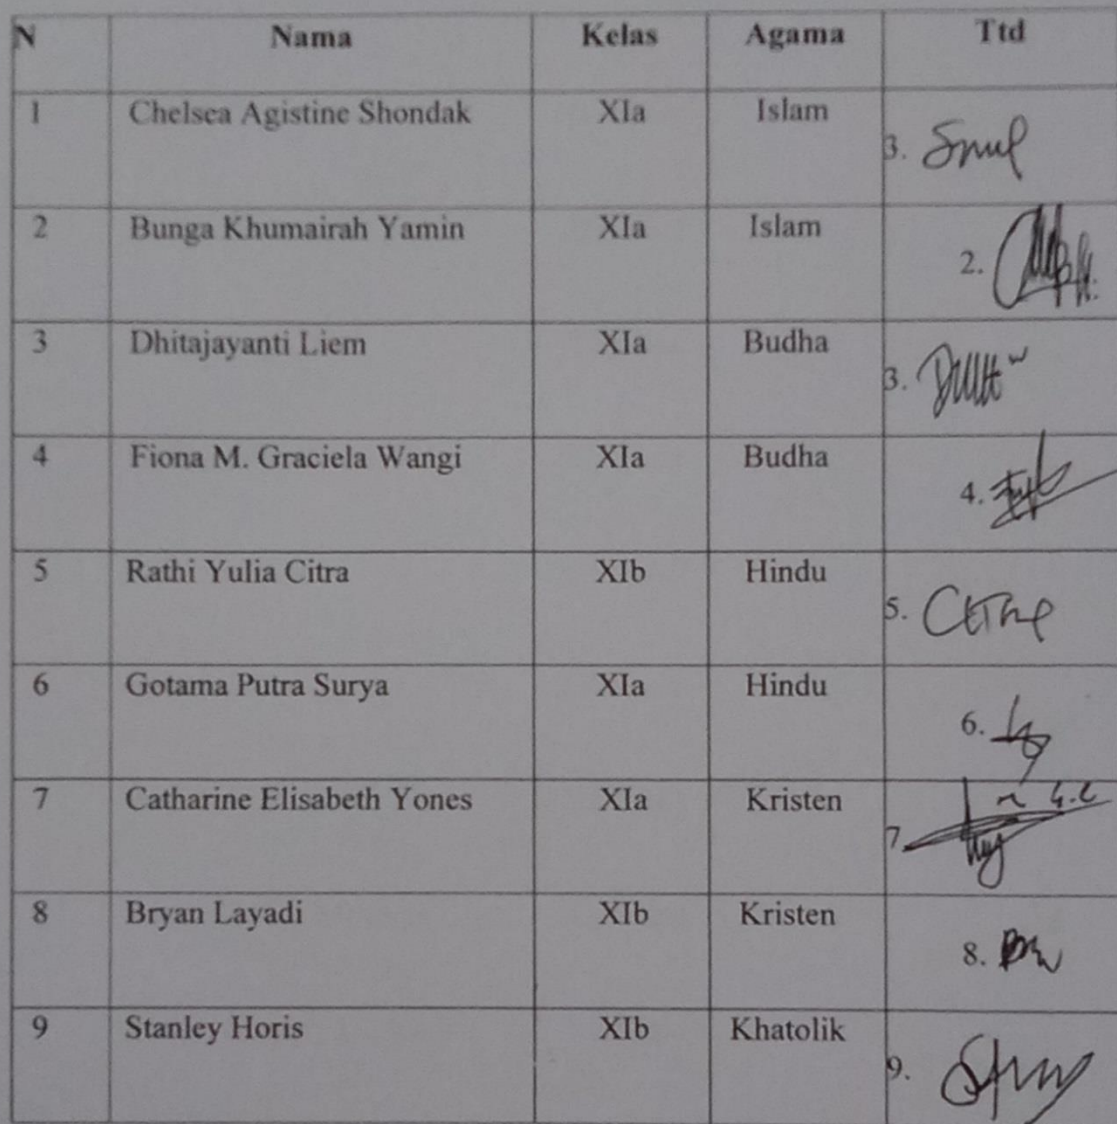 N Nama Kelas Agama Ttd
1 Chelsea Agistine Shondak XIa Islam 3.
2 Bunga Khumairah Yamin XIa Islam 2.
3 Dhitajayanti Liem XIa Budha 3.
4 Fiona M. Graciela Wangi XIa Budha 4.
5 Rathi Yulia Citra XIb Hindu 5.
6 Gotama Putra Surya XIa Hindu 6.
7 Catharine Elisabeth Yones XIa Kristen 7
8 Bryan Layadi XIb Kristen 8.
9 Stanley Horis XIb Khatolik 9.